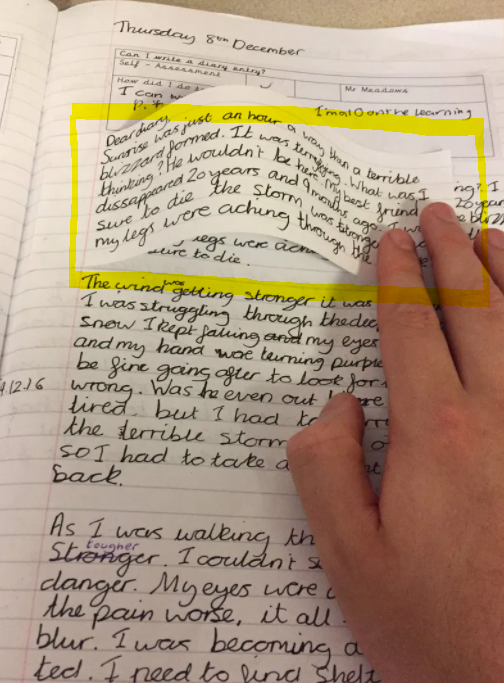 Thursday 8th December
Can I write a diary entry?
Self - Assessment
How did I do
Mr Meadows
I can w
I'm at 0 on the learning
Dear diary,
Sunrise was just an hour a way than a terrible
blizzard formed. It was terrifying. What was I
thinking? He wouldn't be here my best friend
dissappeared 20 years and 9 months ago. I w
sure to die the storm was stronger
my legs were aching through the
legs were achi
sure to die.
ing? I
20 year
The wind was getting stronger it was
I was struggling through the dee
snow I kept falling and my eyes
and my hand wore turning purple
be fine going after to look for
9.12.16
wrong. Was he even out here
tired but I had to
the terrible storm
so I had to take a
back.
As I was walking th
tougher
Stronger. I couldn't s
danger. My eyes were
the pain worse, it all
blur. I was becoming a
ted. I need to find shelt